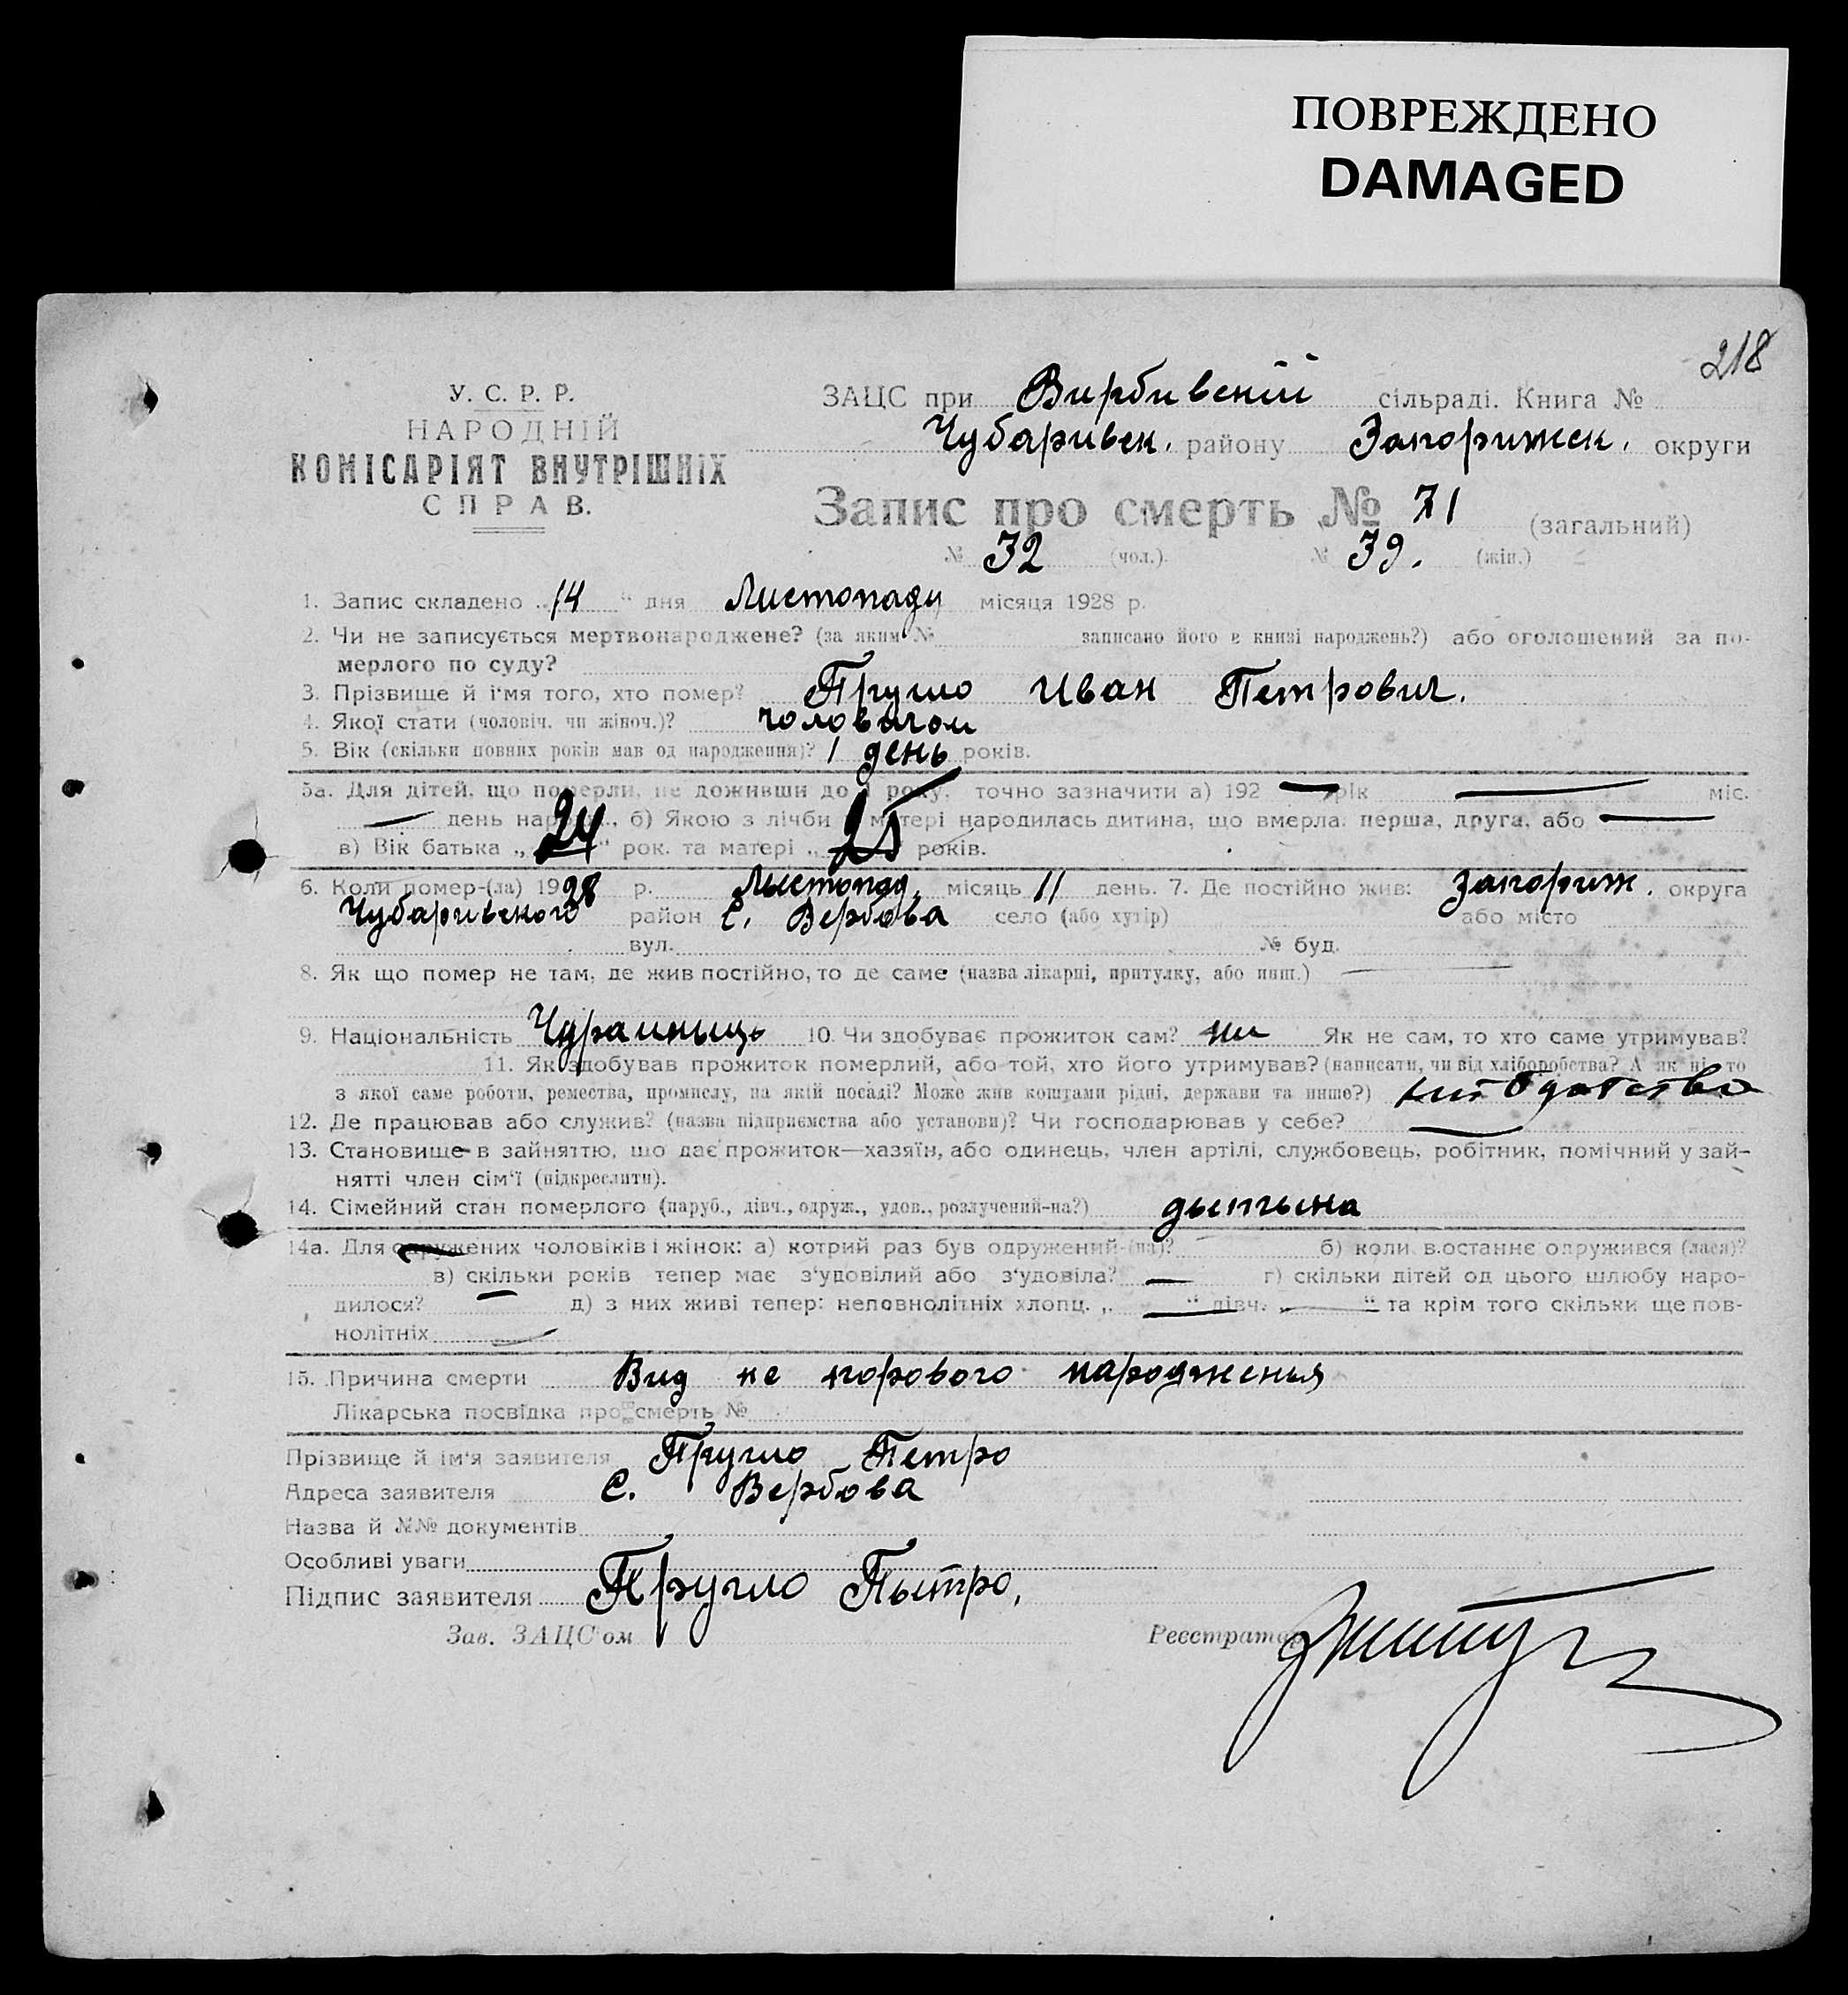 ПОВРЕЖДЕНО
DAMAGED
218
У. С. Р. Р.
НАРОДНІЙ
КОМІСАРІЯТ ВНУТРІШНІХ
СПРАВ.
ЗАЦС при Вирбивській сільраді. Книга №
Чубаривск. району Запорижск. округи
Запис про смерть № 71 (загальний)
№ 32 (чол.) № 39. (жін.)
1. Запис складено „14“ дня Листопада місяця 1928 р.
2. Чи не записується мертвонароджене? (за яким № записано його в книзі народжень?) або оголошений за по-
мерлого по суду?
3. Прізвище й ім'я того, хто помер? Пругло Иван Петрович.
4. Якої стати (чоловіч. чи жіноч.)? чоловичои
5. Вік (скільки повних років мав од народження)? 1 день років.
5а. Для дітей, що померли, не доживши до 1 року, точно зазначити а) 192 — рік — міс.
— день нар., б) Якою з лічби у матері народилась дитина, що вмерла: перша, друга, або —
в) Вік батька „24“ рок. та матері „25 років.
6. Коли помер-(ла) 1928 р. Лыстопад. місяць 11 день. 7. Де постійно жив: Запориж. округа
Чубаривского район С. Вербова село (або хутір) або місто
вул. № буд.
8. Як що помер не там, де жив постійно, то де саме (назва лікарні, притулку, або инш.) —
9. Національність Украиныць 10. Чи здобуває прожиток сам? ни Як не сам, то хто саме утримував?
11. Як здобував прожиток померлий, або той, хто його утримував? (написати, чи від хліборобства? А як ні, то
з якої саме роботи, ремества, промислу, на якій посаді? Може жив коштами рідні, держави та инше?)
12. Де працював або служив? (назва підприємства або установи)? Чи господарював у себе? —
13. Становище в зайняттю, що дає прожиток—хазяїн, або одинець, член артілі, службовець, робітник, помічний у зай-
нятті член сім'ї (підкреслити).
14. Сімейний стан померлого (паруб., дівч., одруж., удов., розлучений-на?) дытына
14а. Для одружених чоловіків і жінок: а) котрий раз був одружений-(на)? б) коли в останнє одружився (лася)?
в) скільки років тепер має з'удовілий або з'удовіла? — г) скільки дітей од цього шлюбу наро-
дилося? — д) з них живі тепер: неповнолітніх хлопц. „—“ дівч. „—“ та крім того скільки ще пов-
нолітніх —
15. Причина смерти Вид не норового народженья
Лікарська посвідка про смерть №
Прізвище й ім'я заявителя Пругло Петро
Адреса заявителя С. Вербова
Назва й №№ документів
Особливі уваги
Підпис заявителя Пругло Пытро.
Зав. ЗАЦС'ом Реєстратор